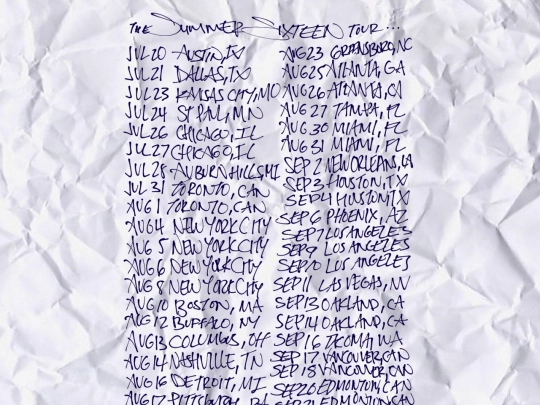 THE SUMMER SIXTEEN TOUR...
JUL 20 AUSTIN, TX
JUL 21 DALLAS, TX
JUL 23 KANSAS CITY, MO
JUL 24 ST PAUL, MN
JUL 26 CHICAGO, IL
JUL 27 CHICAGO, IL
JUL 28 AUBURN HILLS MI
JUL 31 TORONTO, CAN
AUG 1 TORONTO, CAN
AUG 4 NEW YORK CITY
AUG 5 NEW YORK CITY
AUG 6 NEW YORK CITY
AUG 8 NEW YORK CITY
AUG 10 BOSTON, MA
AUG 12 BUFFALO, NY
AUG 13 COLUMBUS, OH
AUG 14 NASHVILLE, TN
AUG 16 DETROIT, MI
AUG 17 PITTSBURGH, PA
AUG 23 GREENSBORO, NC
AUG 25 ATLANTA, GA
AUG 26 ATLANTA, GA
AUG 27 TAMPA, FL
AUG 30 MIAMI, FL
AUG 31 MIAMI, FL
SEP 2 NEW ORLEANS, LA
SEP 3 HOUSTON, TX
SEP 4 HOUSTON TX
SEP 6 PHOENIX, AZ
SEP 7 LOS ANGELES
SEP 9 LOS ANGELES
SEP 10 LOS ANGELES
SEP 11 LAS VEGAS, NV
SEP 13 OAKLAND, CA
SEP 14 OAKLAND, CA
SEP 16 TACOMA, WA
SEP 17 VANCOUVER, CAN
SEP 18 VANCOUVER, CAN
SEP 20 EDMONTON, CAN
SEP 21 EDMONTON, CAN